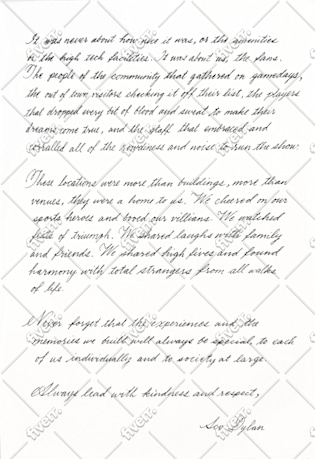 It was never about how nice it was, or the amenities
or the high tech facilities. It was about us, the fans.
The people of the community that gathered on gamedays,
the out of town visitors checking it off their list, the players
that dropped every bit of blood and sweat to make their
dreams come true, and the staff that embraced and
corralled all of the rowdiness and noise to run the show.
These locations were more than buildings, more than
venues, they were a home to us. We cheered on our
sports heroes and booed our villians. We watched
of triumph. We shared laughs with family
and friends. We shared high fives and found
harmony with total strangers from all walks
of life.
Never forget that the experiences and the
memories we built will always be special, to each
of us individually and to society at large.
Always lead with kindness and respect,
Dylan
fiverr.